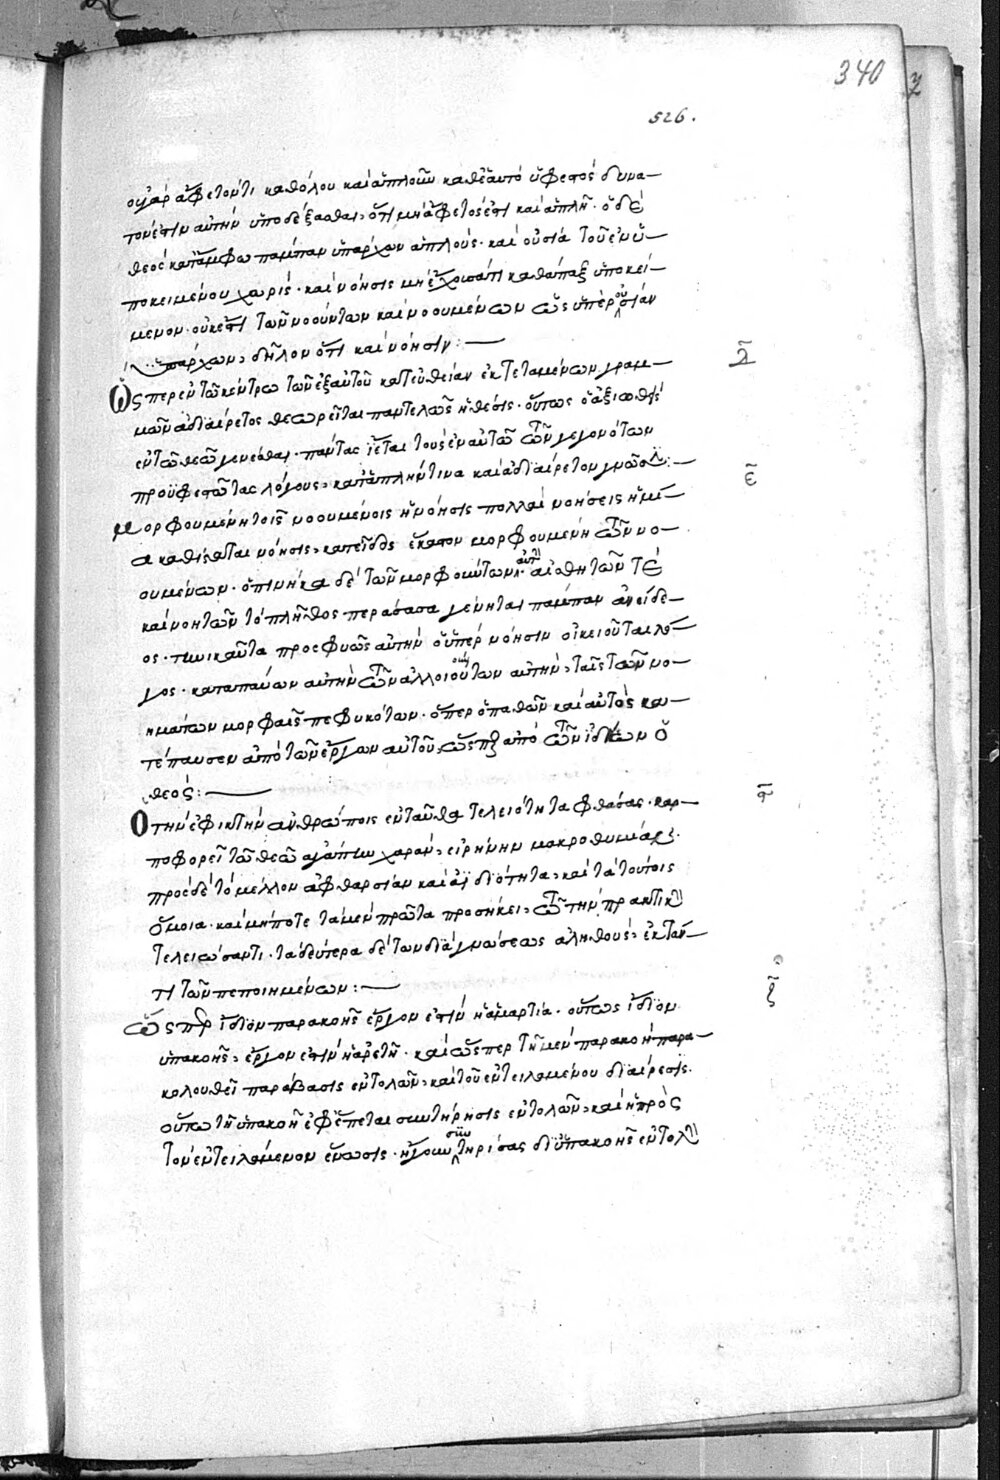 340
526.
οὐ γάρ ἄφετον τι καθόλου καὶ ἁπλοῦν καθ' ἑαυτό ὑφεστός δυνα-
τόν ἐστιν αὐτήν ὑποδέξασθαι, ὅτι μή ἄφετός ἐστι καὶ ἁπλῆ· ὁ δέ
θεός κατ' ἄμφω πάμπαν ὑπάρχων ἁπλοῦς· καὶ οὐσία τοῦ ἐν ὑ-
ποκειμένου χωρίς· καὶ νόησις μή ἔχουσά τι καθάπαξ ὑποκεί-
μενον· οὐκ ἔστι τῶν νοούντων καὶ νοουμένων ὡς ὑπέρ οὐσίαν
ὑπάρχων, δῆλον ὅτι καὶ νόησιν:
δ
Ὥσπερ ἐν τῷ κέντρῳ τῶν ἐξ αὐτοῦ κατ' εὐθεῖαν ἐκτεταμένων γραμ-
μῶν ἀδιαίρετος θεωρεῖται παντελῶς ἡ θέσις· οὕτως ὁ ἀξιωθείς
ἐν τῷ θεῷ γενέσθαι· πάντας εἴσεται τούς ἐν αὐτῷ τῶν γεγονότων
προϋφεστῶτας λόγους, καθ' ἁπλήν τινα καὶ ἀδιαίρετον γνῶσιν:
ε
Μορφουμένη τοῖς νοουμένοις ἡ νόησις πολλαί νοήσεις ἡ μί-
α καθίσταται νόησις, κατ' εἶδος ἕκαστον μορφουμένη τῶν νο-
ουμένων· ὁπηνίκα δέ τῶν μορφούντων αὐτήν αἰσθητῶν τέ
καὶ νοητῶν τό πλῆθος περάσασα γένηται πάμπαν ἀνείδε-
ος· τηνικαῦτα προσφυῶς αὐτήν ὁ ὑπέρ νόησιν οἰκειοῦται λό-
γος· καταπαύων αὐτήν τῶν ἀλλοιούν των αὐτήν, ταῖς τῶν νο-
ημάτων μορφαῖς πεφυκότων· ὅπερ ὁ παθών καὶ αὐτός κα-
τέπαυσεν ἀπό τῶν ἔργων αὐτοῦ, ὥσπερ ἀπό τῶν ἰδίων ὁ
θεός:
ϛ
Ὁ τήν ἐφικτήν ἀνθρώποις ἐνταῦθα τελειότητα φθάσας· καρ-
ποφορεῖ τῷ θεῷ ἀγάπην χαράν, εἰρήνην μακροθυμίαν·
πρός δέ τό μέλλον ἀφθαρσίαν καὶ ἀϊδιότητα, καὶ τά τούτοις
ὅμοια· καὶ μήποτε τά μέν πρῶτα προσήκει, τῷ τήν πρακτικήν
τελειώσαντι· τά δεύτερα δέ τῷ διά γνώσεως ἀληθοῦς, ἐκστάν-
τι τῶν πεποιημένων:
ζ
Ὥσπερ ἴδιον παρακοῆς ἔργον ἐστίν ἡ ἁμαρτία· οὕτως ἴδιον
ὑπακοῆς, ἔργον ἐστίν ἡ ἀρετή· καὶ ὥσπερ τῇ μέν παρακοῇ παρα-
κολουθεῖ παράβασις ἐντολῶν, καὶ τοῦ ἐντειλαμένου διαίρεσις·
οὕτω τῇ ὑπακοῇ ἐφέπεται συντήρησις ἐντολῶν, καὶ ἡ πρός
τόν ἐντειλάμενον ἕνωσις· ὁ γοῦν συντηρήσας δι' ὑπακοῆς ἐντολήν